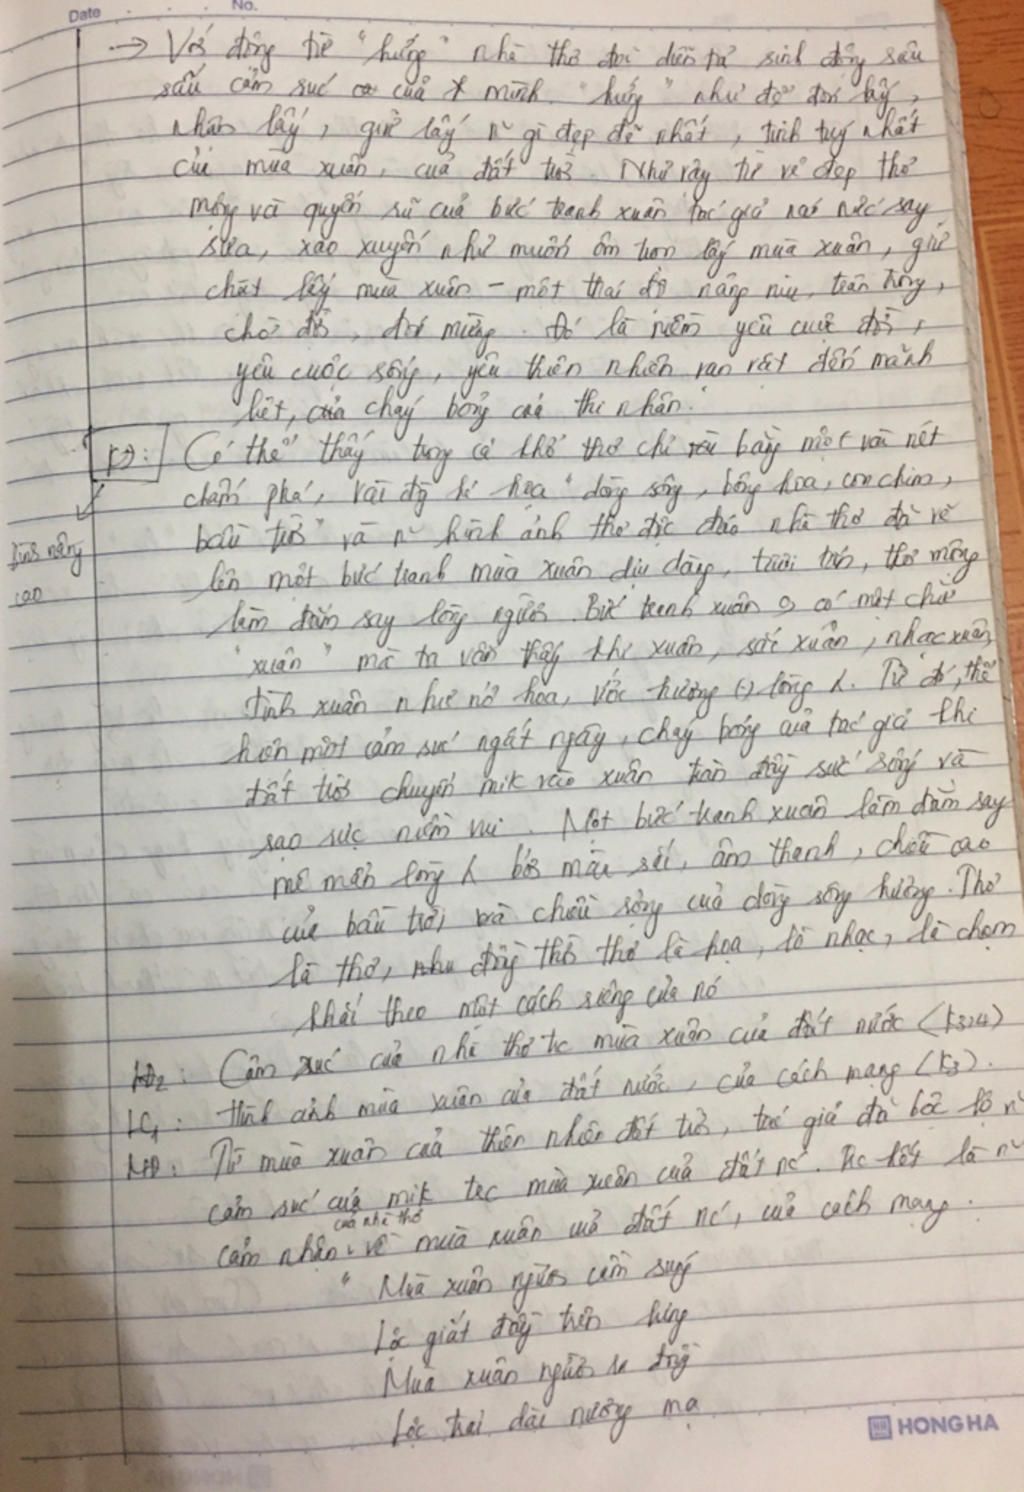 Date . . . No.
→ Với động từ "hứng" nhà thơ đã diễn tả sinh động sâu
sắc cảm xúc của mình. "hứng" như để đón lấy,
nhận lấy, giữ lấy n~ gì đẹp đẽ nhất, tinh tuý nhất
của mùa xuân, của đất trời. Như vậy từ vẻ đẹp thơ
mộng và quyến rũ của bức tranh xuân tác giả náo nức say
sưa, xao xuyến như muốn ôm trọn lấy mùa xuân, giữ
chặt lấy mùa xuân - một thái độ nâng niu, trân trọng,
chờ đợi, đón mừng. Đó là niềm yêu cuộc đời,
yêu cuộc sống, yêu thiên nhiên van vát đến mãnh
liệt, cháy bỏng của thi nhân.
Có thể thấy trong cả khổ thơ chỉ bằng một vài nét
chấm phá, vài độ kí hoạ "dòng sông, bông hoa, con chim,
bầu trời" và n~ hình ảnh thơ độc đáo nhà thơ đã vẽ
nâng
cao
lên một bức tranh mùa xuân dịu dàng, tươi tắn, thơ mộng
làm đắm say lòng người. Bức tranh xuân có một chữ
"xuân" mà ta vẫn thấy khí xuân, sắc xuân, nhạc xuân,
tình xuân như nở hoa, ướp hương (.) lòng. Từ đó, thể
hiện một cảm xúc ngất ngây, cháy bỏng của tác giả khi
đất trời chuyển mik vào xuân tràn đầy sức sống và
rạo rực niềm vui. Một bức tranh xuân làm đắm say
mê mẩn lòng bởi màu sắc, âm thanh, chiều cao
của bầu trời và chiều rộng của dòng sông hương. Thơ
là thơ, nhu đồng thời thơ là hoạ, là nhạc, là chạm
khắc theo một cách riêng của nó
HĐ2: Cảm xúc của nhà thơ tc mùa xuân của đất nước (K3,4)
LC1: Hình ảnh mùa xuân của đất nước, của cách mạng (K3).
MĐ: Từ mùa xuân của thiên nhiên đất trời, tác giả đã bộc lộ n~
cảm xúc của mik tc mùa xuân của đất nc. Tc hết là n~
cảm nhận của nhà thơ về mùa xuân của đất nc, của cách mạng.
"Mùa xuân người cầm súng
Lộc giắt đầy trên lưng
Mùa xuân người ra đồng
Lộc trải dài nương mạ
HONG HA